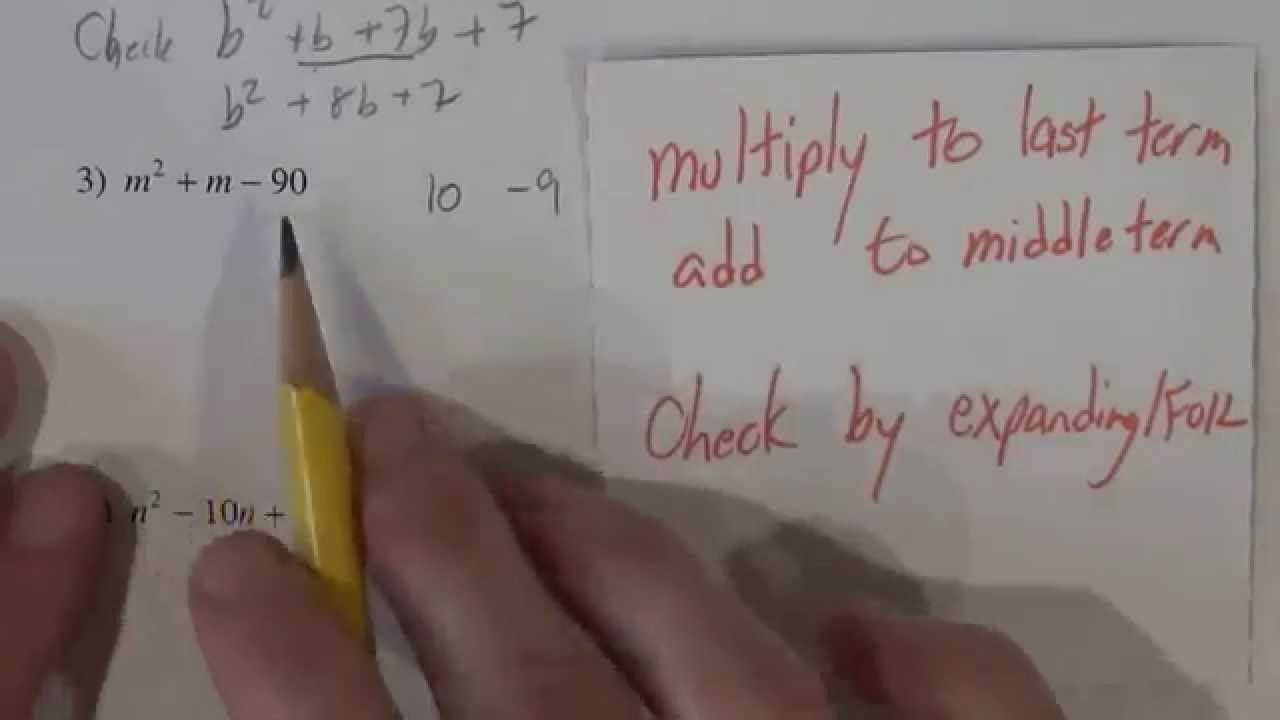 Check b² + b + 7b + 7
b² + 8b + 7
3) m² + m − 90 10 −9
n² − 10n +
multiply to last term
add to middle term
Check by expanding/FOIL